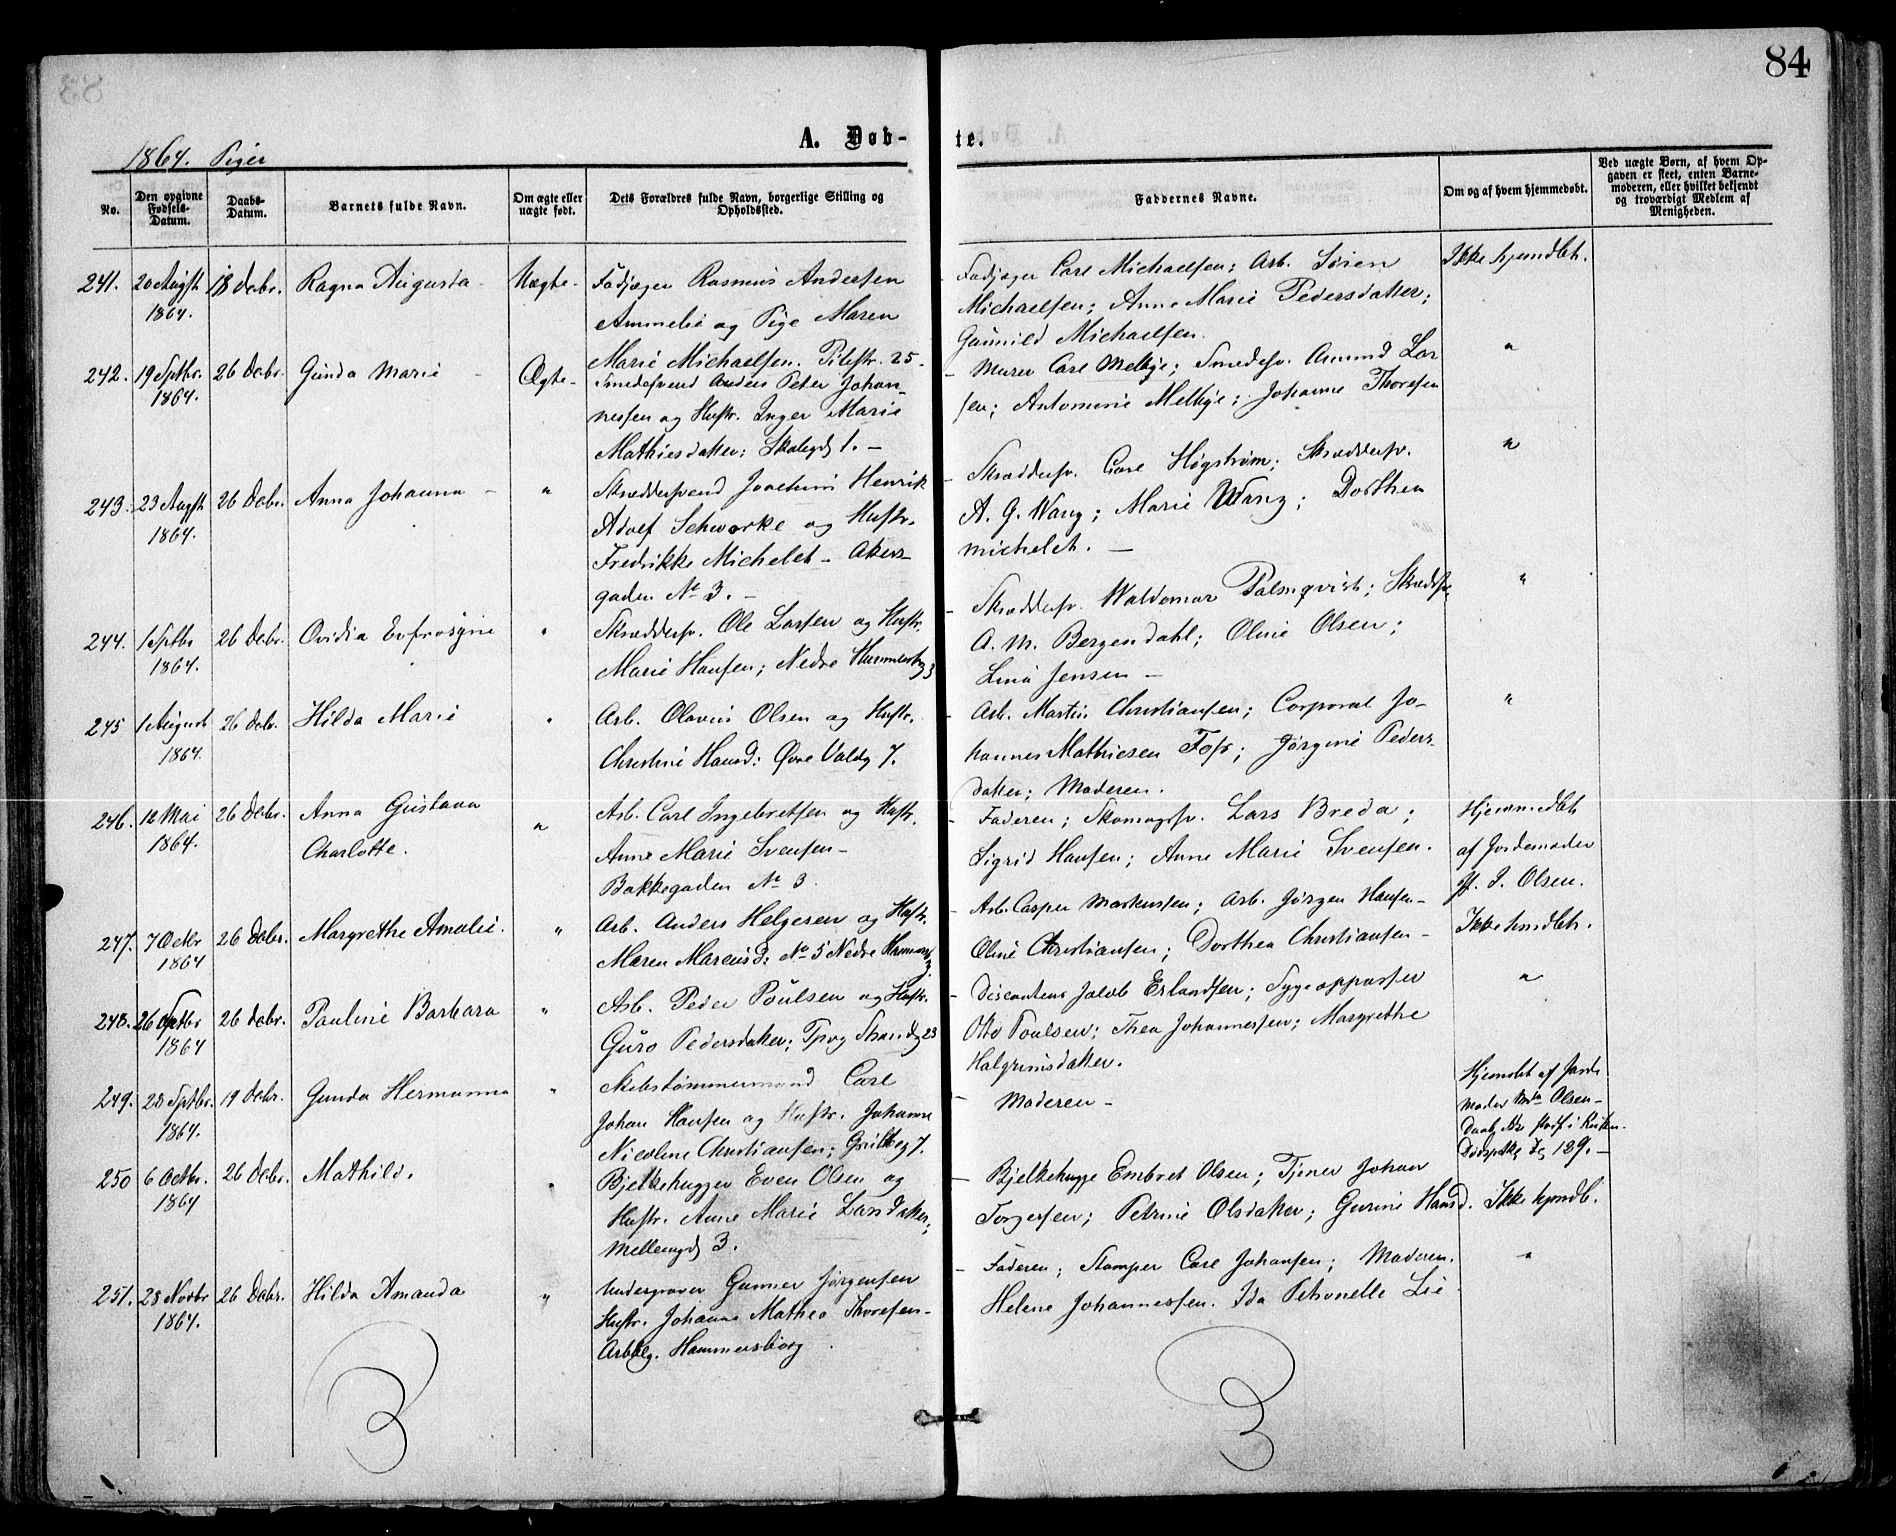 84
1864. Piger
A. Døb-
te.
No.
Den opgivne Fødsels-Datum.
Daabs-Datum.
Barnets fulde Navn.
Om ægte eller uægte født.
Dets Forældres fulde Navn, borgerlige Stilling og Opholdssted.
Faddernes Navne.
Om og af hvem hjemmedøbt.
Ved uægte Børn, af hvem Op-
gaven er skeet, enten Barne-
moderen, eller hvilket bekjendt
og troværdigt Medlem af
Menigheden.
241. 20 Augst 18 Debr. Ragna Augusta - Uægte -
1864.
Rasmus Andersen
og Pige Maren
Marie Michaelsen. Pilestr. 25
Carl Michaelsen; Arb. Søren
Michaelsen; Anne Marie Pedersdatter;
Gunnild Michaelsen.
Ikke hjemdbt.
242. 19 Sptbr. 26 Debr. Gunda Marie - Ægte -
1864.
Smedesvend Anders Peter Johan-
nesen og Hustr. Inger Marie
Mathiesdatter; 1. -
- Murer Carl Melbye; Smedesv. Amund Lar
sen; Antomine Melbye; Johanne Thoresen
"
243. 23 Augst 26 Debr. Anna Johanna - "
1864.
Skrædersvend Joachim Henrik
Adolf Schwarke og Hustr.
Fredrikke Michelet - Akers-
gaden No 3. -
- Skræddersv. Carl Högstrøm; Skræddersv.
A. G. Wang; Marie Wang; Dorthea
Michelet. -
"
244. 1 Sptbr 26 Debr. Ovidia Eufrosyne "
1864.
Skræddersv. Ole Larsen og Hustr.
Marie Hansen; Nedre Hammersbg 3
- Skræddersv. Waldemar Palmqvist; Skrædsv.
A. M. Bergendahl; Oline Olsen;
Lina Jensen -
"
245 1 August 26 Debr. Hilda Marie "
1864.
Arb. Olavus Olsen og Hustr.
Christine Hansd: Øvre Voldg 7.
- Arb. Martin Christiansen; Corporal Jo-
hannes Mathiesen Foss; Jørgine Peders-
datter; Moderen.
"
246. 12 Mai 26 Debr. Anna Gustava "
1864. Charlotte.
Arb. Carl Ingebretsen og Hustr.
Anne Marie Svensen -
Bakkegaden No 3.
- Faderen; Skomagrsv. Lars Breda;
Sigrid Hansen; Anne Marie Svensen.
Hjemmedbt
af Jordemoder
J. Olsen.
247. 7 Octbr 26 Debr. Margrethe Amalie. "
1864
Arb. Anders Helgesen og Hustr.
Maren Marcusd: No 5 Nedre
- Arb. Casper Markussen; Arb. Jørgen Hansen -
Oline Christiansen; Dorthea Christiansen -
Ikke hmdbt.
248. 26 Sptbr 26 Debr. Pauline Barbara "
1864
Arb. Peder Poulsen og Hustr.
Guro Pedersdatter; Strandg 23
- Jacob Erlandsen; Sygeopparser
Otto Poulsen; Thea Johannessen; Margrethe
Halgrimsdatter.
"
249. 28 Sptbr. 19 Debr. Gunda Hermanna "
1864.
Skibstømmermand Carl
Johan Hansen og Hustr. Johanne
Nicoline Christiansen; 7.
- Moderen -
Hjemdbt af Jorde
moder Olsen -
189. -
250 6 Octbr. 26 Debr. Mathild. "
1864
Bjelkehugger Even Olsen og
Hustr. Anne Marie Larsdatter;
Møllergd 3.
- Bjelkehugge Embret Olsen; Tjener Johan
Torgersen; Petrine Olsdatter; Gurine Hansd.
Ikke hjemdb.
251. 28 Novbr 26 Debr. Hilda Amanda "
1864.
Undergraver Gunner Jørgensen
Hustr. Johanne Mathea Thoresen -
Hammersborg
- Faderen; Stamper Carl Johansen; Moderen.
Helene Johannessen. Ida Petronelle Lie
"